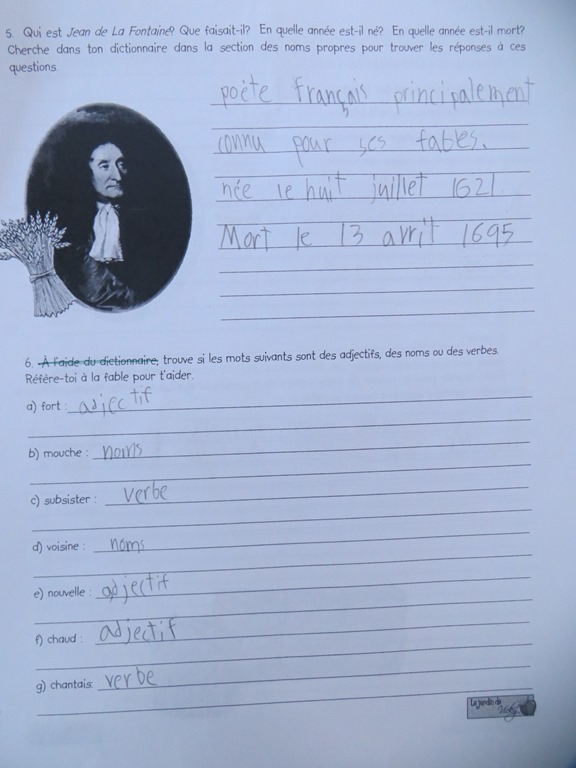 5. Qui est Jean de La Fontaine? Que faisait-il? En quelle année est-il né? En quelle année est-il mort?
Cherche dans ton dictionnaire dans la section des noms propres pour trouver les réponses à ces
questions.
poète français principalement
connu pour ses fables.
née le huit juillet 1621
Mort le 13 avril 1695
6. À l'aide du dictionnaire, trouve si les mots suivants sont des adjectifs, des noms ou des verbes.
Réfère-toi à la fable pour t'aider.
a) fort : adjectif
b) mouche : noms
c) subsister : verbe
d) voisine : noms
e) nouvelle : adjectif
f) chaud : adjectif
g) chantais: verbe
Le jardin de